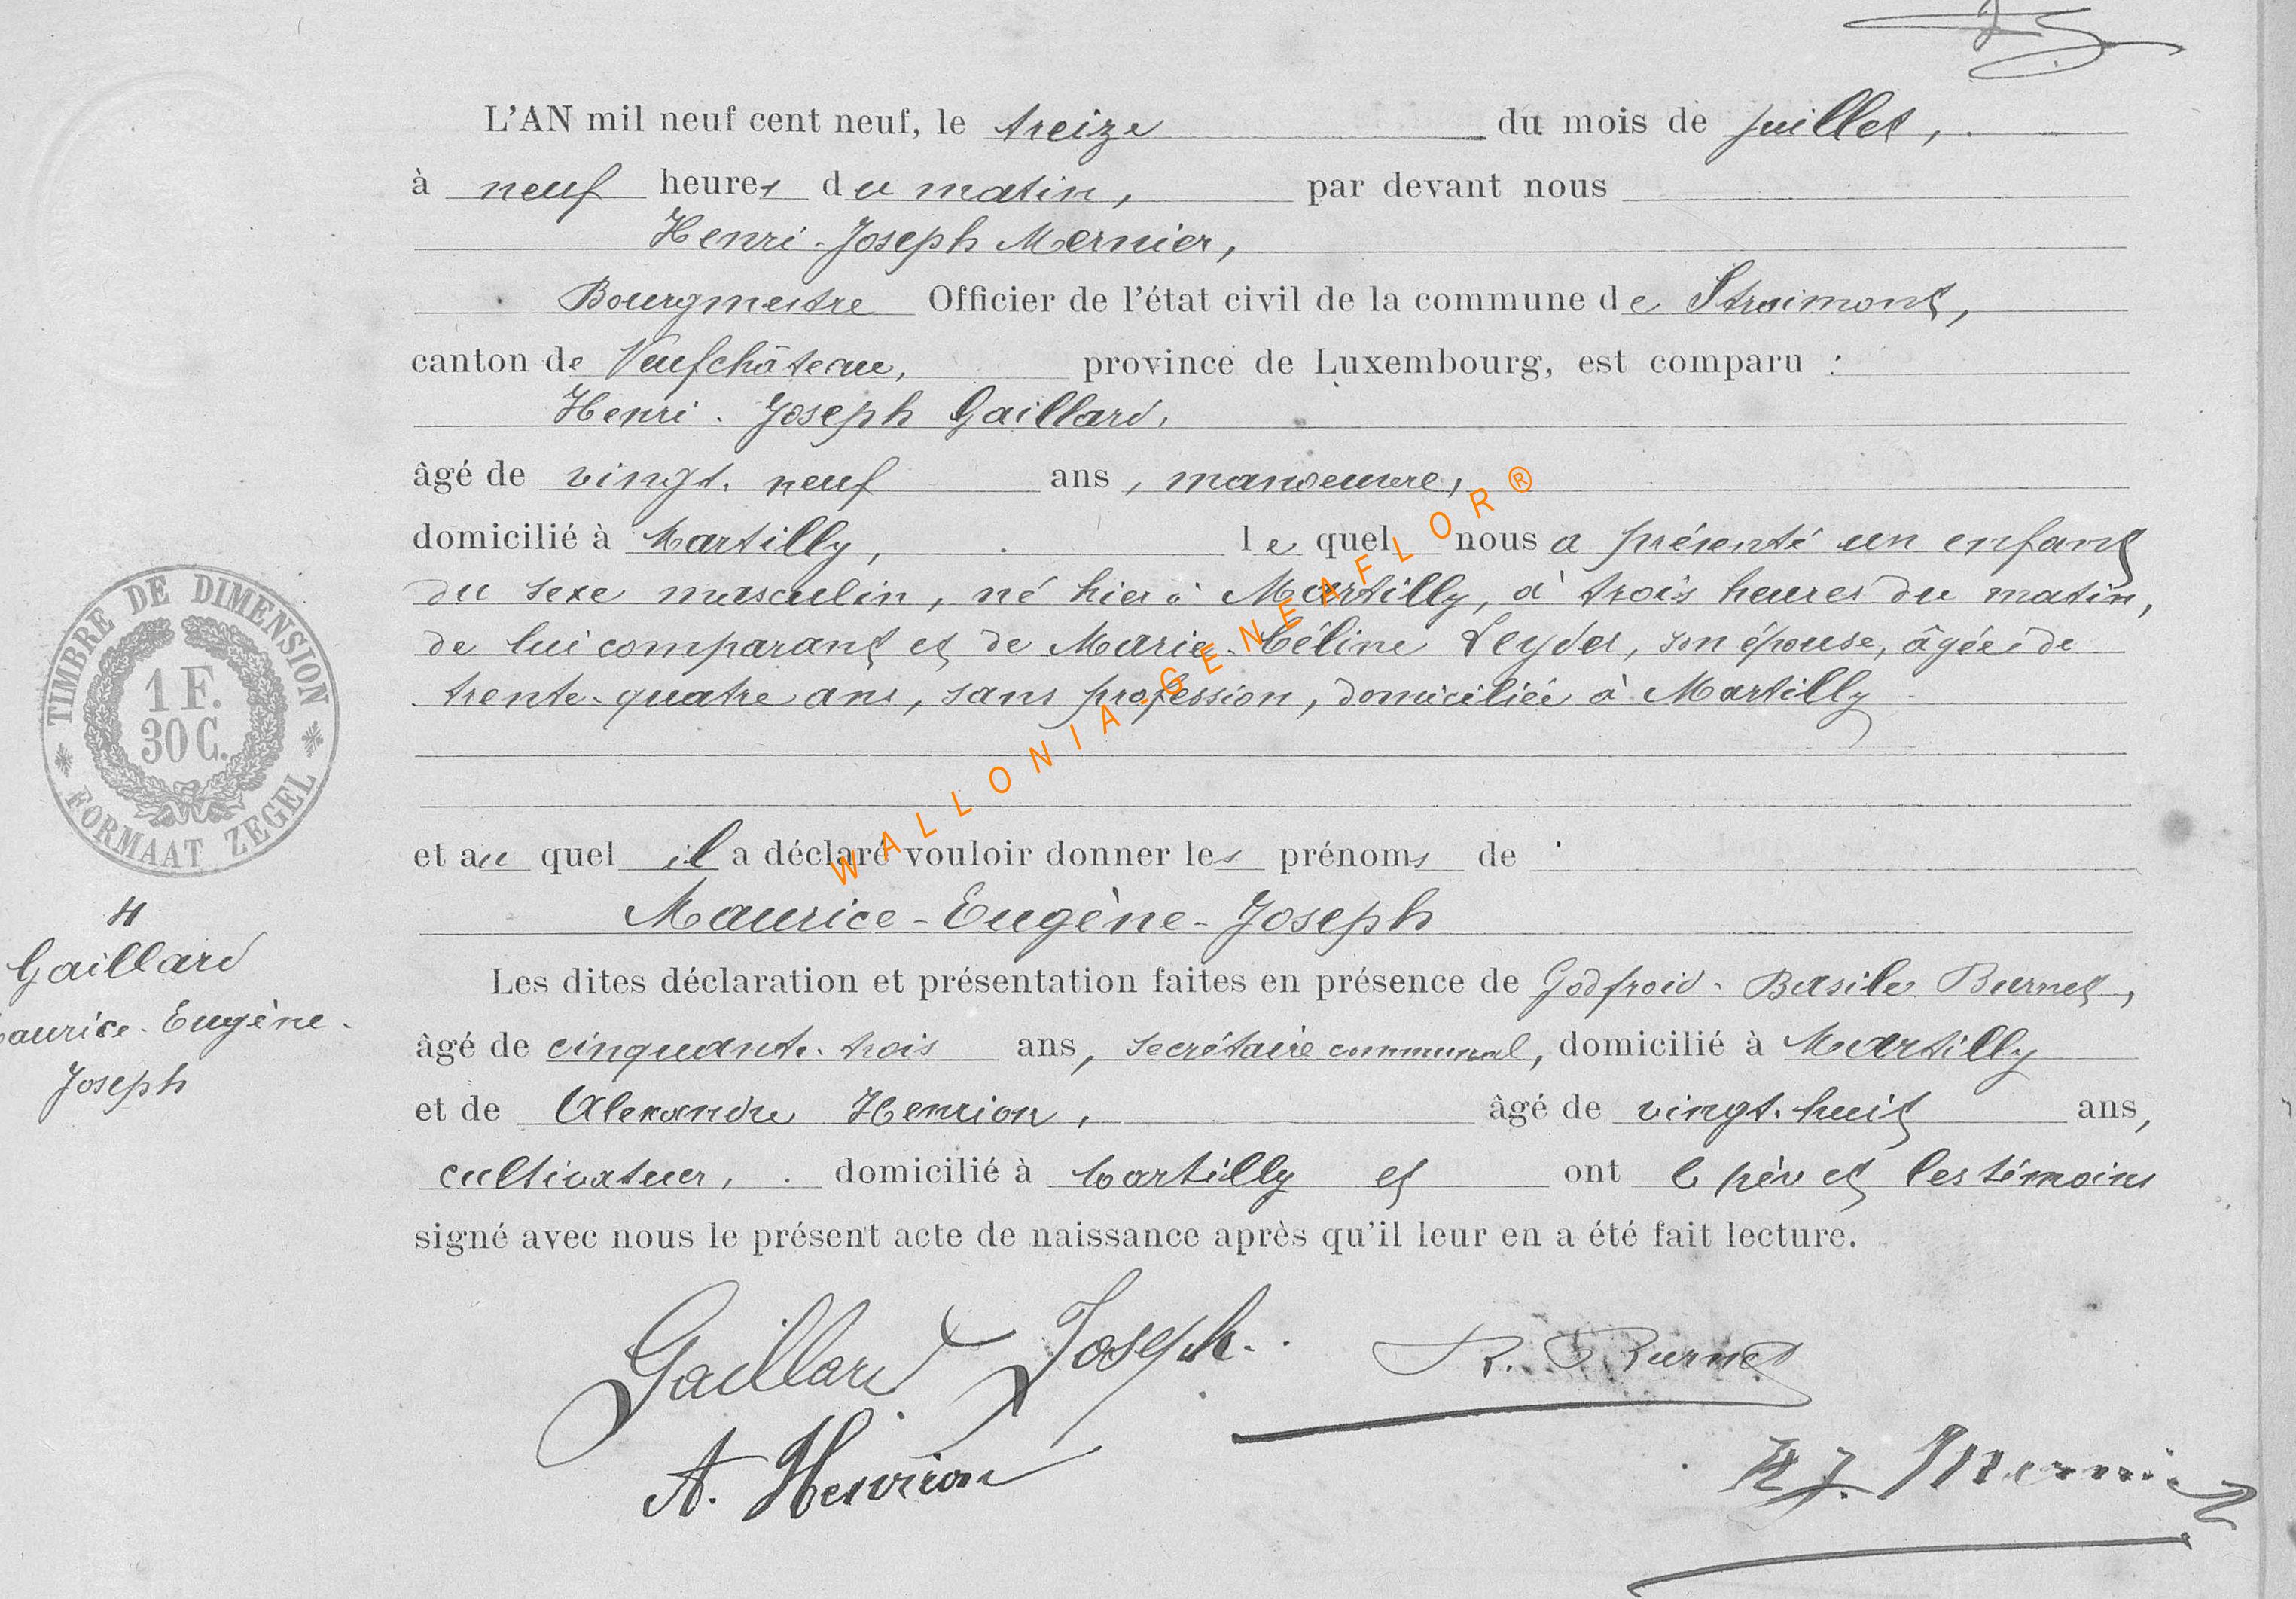 L'AN mil neuf cent neuf, le treize du mois de juillet,
à neuf heures du matin, par devant nous
Henri-Joseph Mernier,
Bourgmestre Officier de l'état civil de la commune de Straimont,
canton de Neufchâteau, province de Luxembourg, est comparu :
Henri-Joseph Gaillard,
âgé de vingt-neuf ans, manoeuvre,
domicilié à Martilly, lequel nous a présenté un enfant
du sexe masculin, né hier à Martilly, à trois heures du matin,
de lui comparant et de Marie-Céline Leyder, son épouse, âgée de
trente-quatre ans, sans profession, domiciliée à Martilly
et au quel il a déclaré vouloir donner les prénoms de
Maurice-Eugène-Joseph
Les dites déclaration et présentation faites en présence de Godfroid-Basile Burnet,
âgé de cinquante-trois ans, secrétaire communal, domicilié à Martilly
et de Alexandre Henrion, âgé de vingt-huit ans,
cultivateur, domicilié à Martilly et ont le père et les témoins
signé avec nous le présent acte de naissance après qu'il leur en a été fait lecture.
Gaillard Joseph.
Burnet
A. Henrion
H J. Mernier
TIMBRE DE DIMENSION
1 F.
30 C.
FORMAAT ZEGEL
4
Gaillard
Maurice-Eugène-
Joseph
WALLONIA-GENEAFLOR®